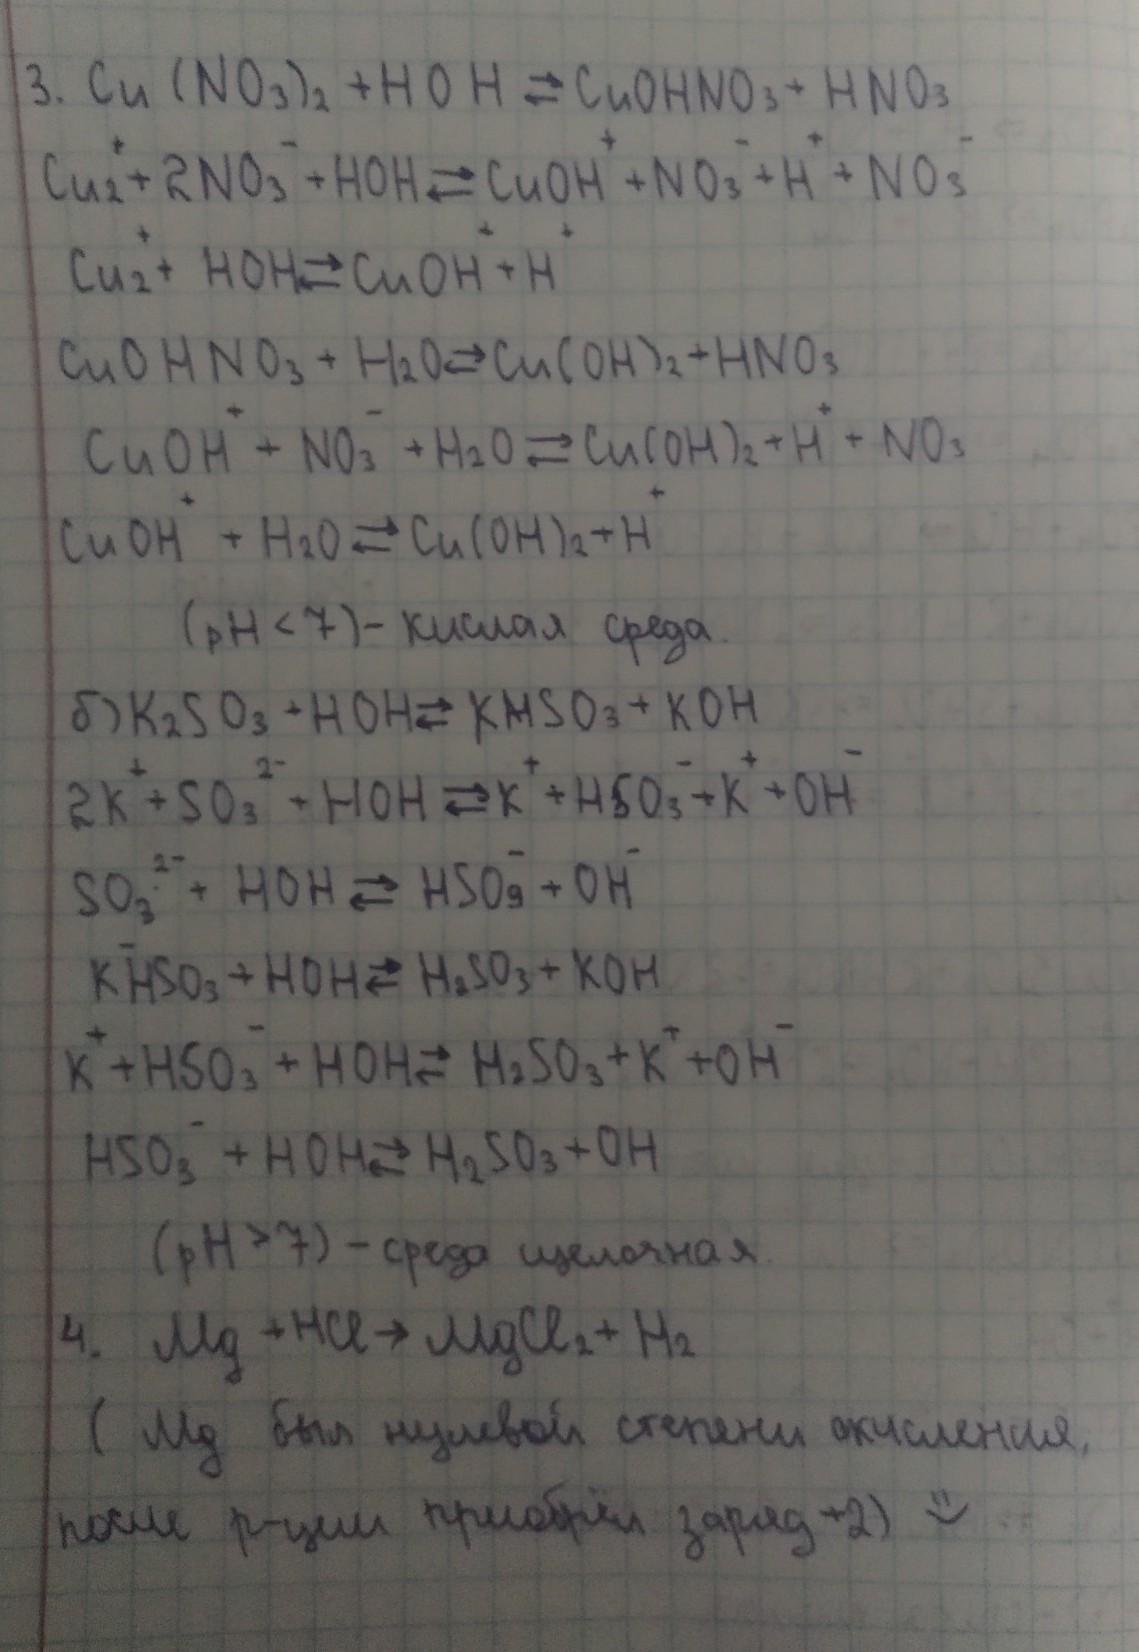 3. Cu (NO₃)₂ + H O H ⇄ CuOHNO₃ + HNO₃
Cu₂⁺ + 2NO₃⁻ + HOH ⇄ CuOH⁺ + NO₃⁻ + H⁺ + NO₃⁻
Cu₂⁺ + HOH ⇄ CuOH⁺ + H⁺
CuOHNO₃ + H₂O ⇄ Cu(OH)₂ + HNO₃
CuOH⁺ + NO₃⁻ + H₂O ⇄ Cu(OH)₂ + H⁺ + NO₃
CuOH⁺ + H₂O ⇄ Cu(OH)₂ + H⁺
(pH < 7) - кислая среда.
б) K₂SO₃ + HOH ⇄ KHSO₃ + KOH
2K⁺ + SO₃²⁻ + HOH ⇄ K⁺ + HSO₃⁻ + K⁺ + OH⁻
SO₃²⁻ + HOH ⇄ HSO₃⁻ + OH⁻
KHSO₃ + HOH ⇄ H₂SO₃ + KOH
K⁺ + HSO₃⁻ + HOH ⇄ H₂SO₃ + K⁺ + OH⁻
HSO₃⁻ + HOH ⇄ H₂SO₃ + OH
(pH > 7) - среда щелочная.
4. Mg + HCl → MgCl₂ + H₂
( Mg был нулевой степени окисления,
после р-ции приобрёл заряд +2) ☺